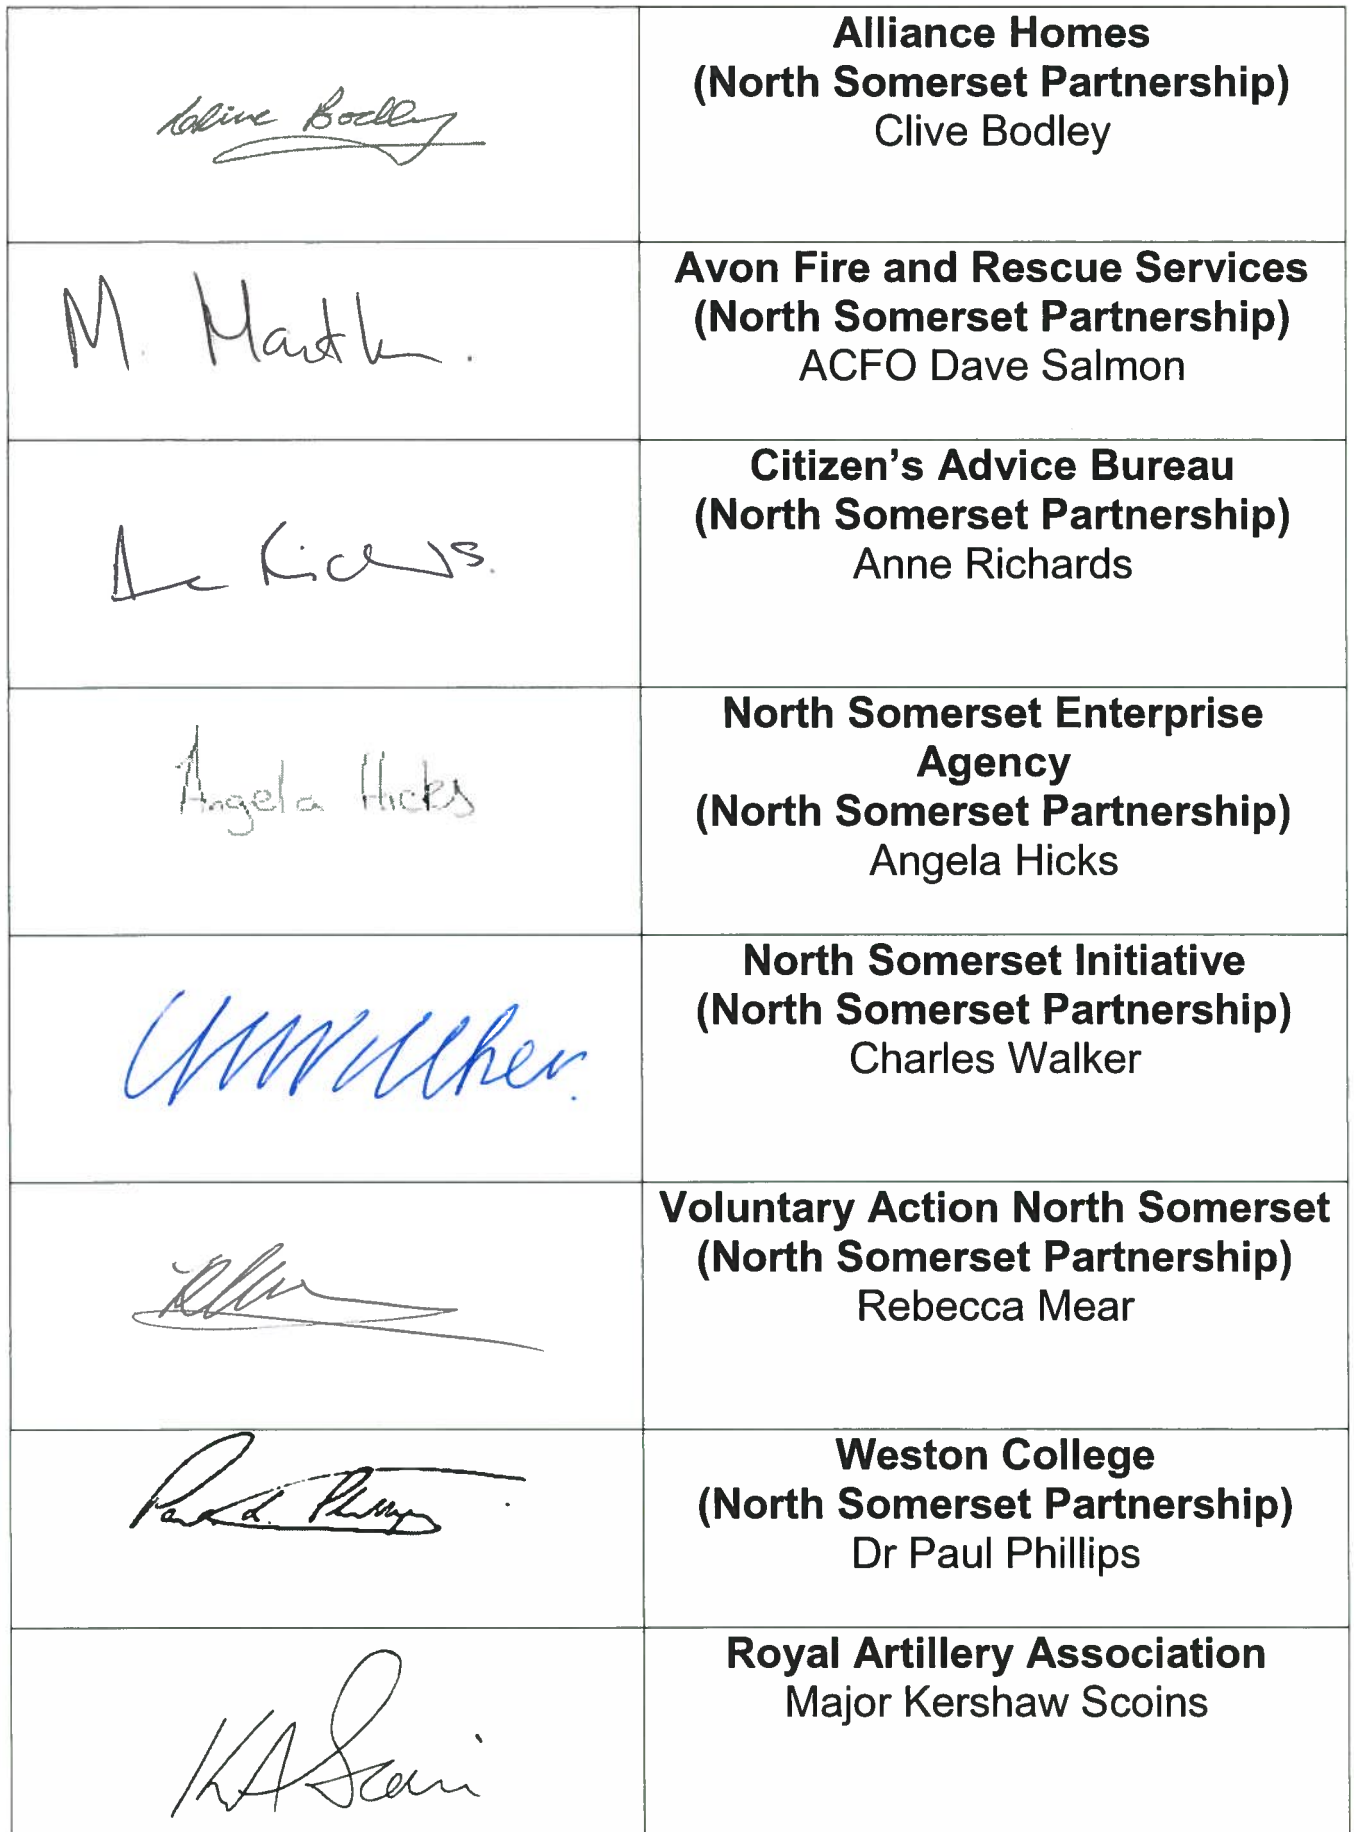 Clive Bodley
Alliance Homes
(North Somerset Partnership)
Clive Bodley
M.
Avon Fire and Rescue Services
(North Somerset Partnership)
ACFO Dave Salmon
Richards.
Citizen's Advice Bureau
(North Somerset Partnership)
Anne Richards
Angela Hicks
North Somerset Enterprise
Agency
(North Somerset Partnership)
Angela Hicks
North Somerset Initiative
(North Somerset Partnership)
Charles Walker
Voluntary Action North Somerset
(North Somerset Partnership)
Rebecca Mear
Weston College
(North Somerset Partnership)
Dr Paul Phillips
Royal Artillery Association
Major Kershaw Scoins